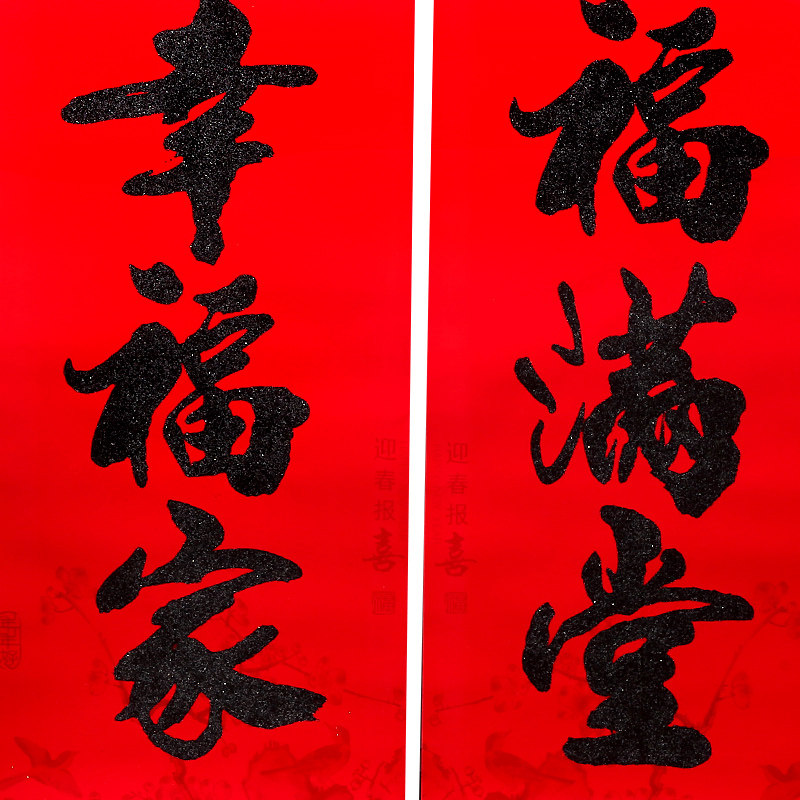 福满堂
幸福家
迎春报喜
迎春报喜